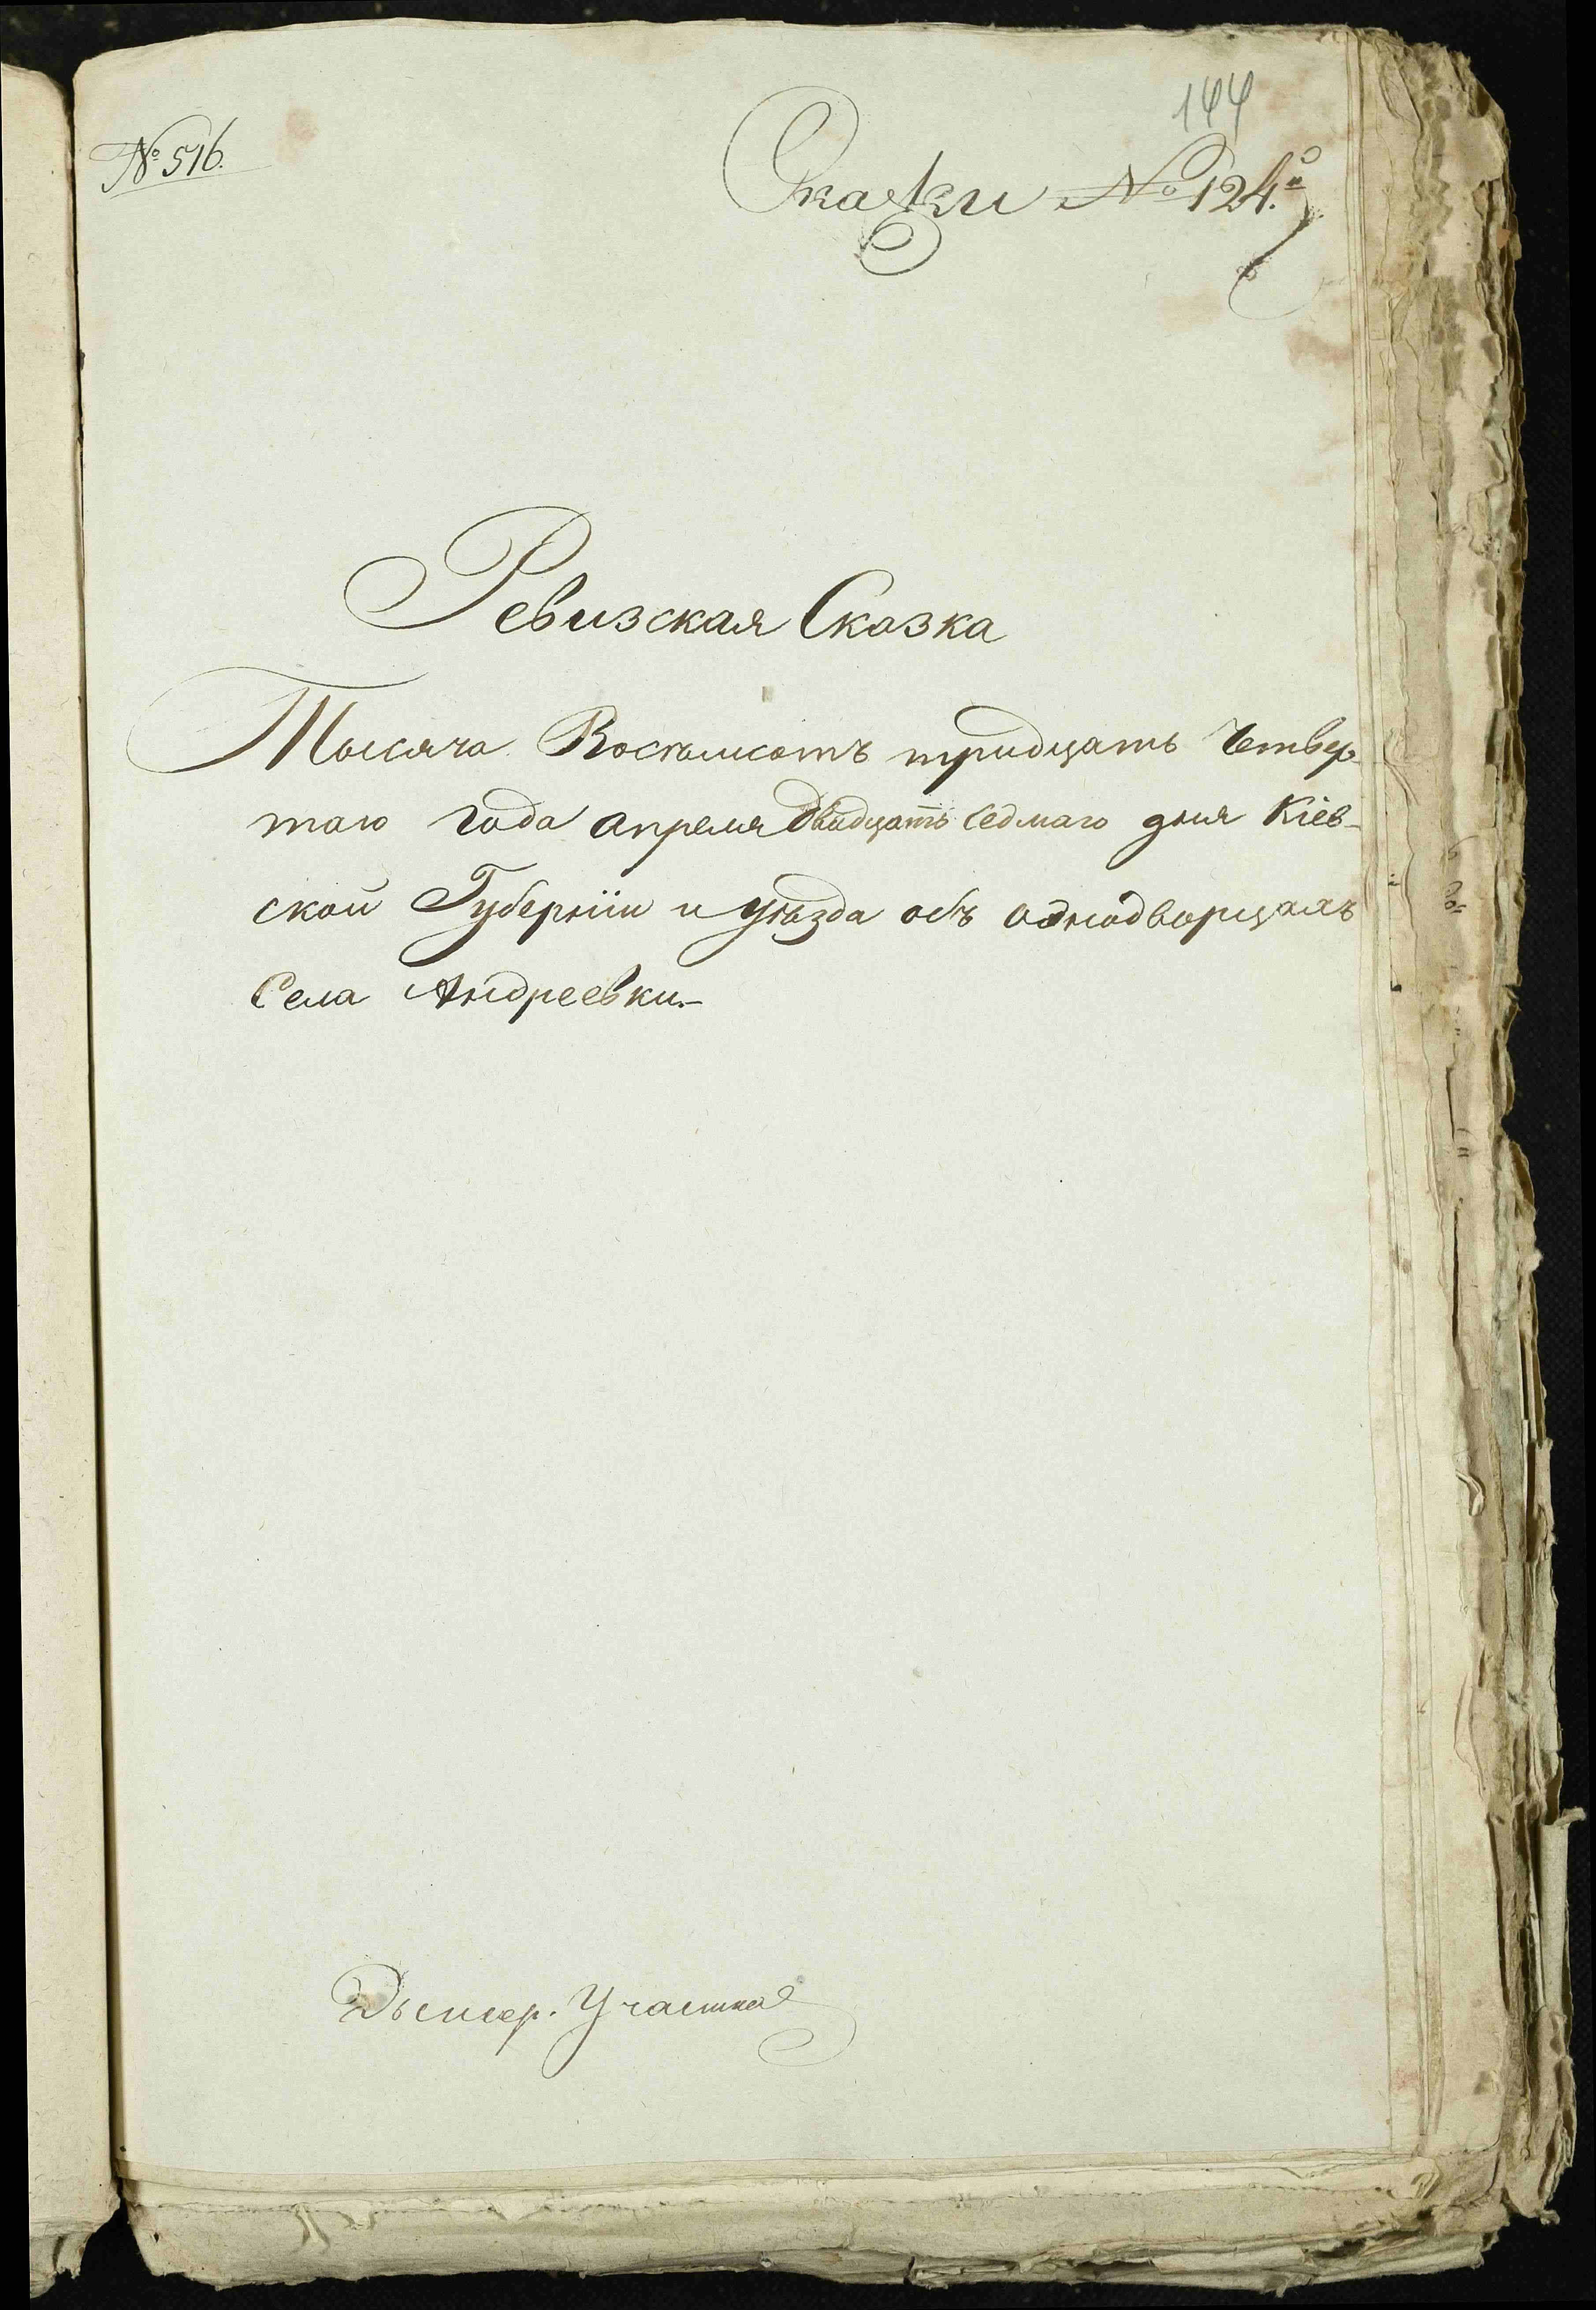 № 516.
144
Сказки № 124.
Ревизская Сказка
Тысяча Восьмсотъ тридцать Четвер-
таго года апреля двадцать седмаго дня Кіев-
ской Губерніи и уѣзда объ однодворцахъ
Села Андреевки.—
Участка